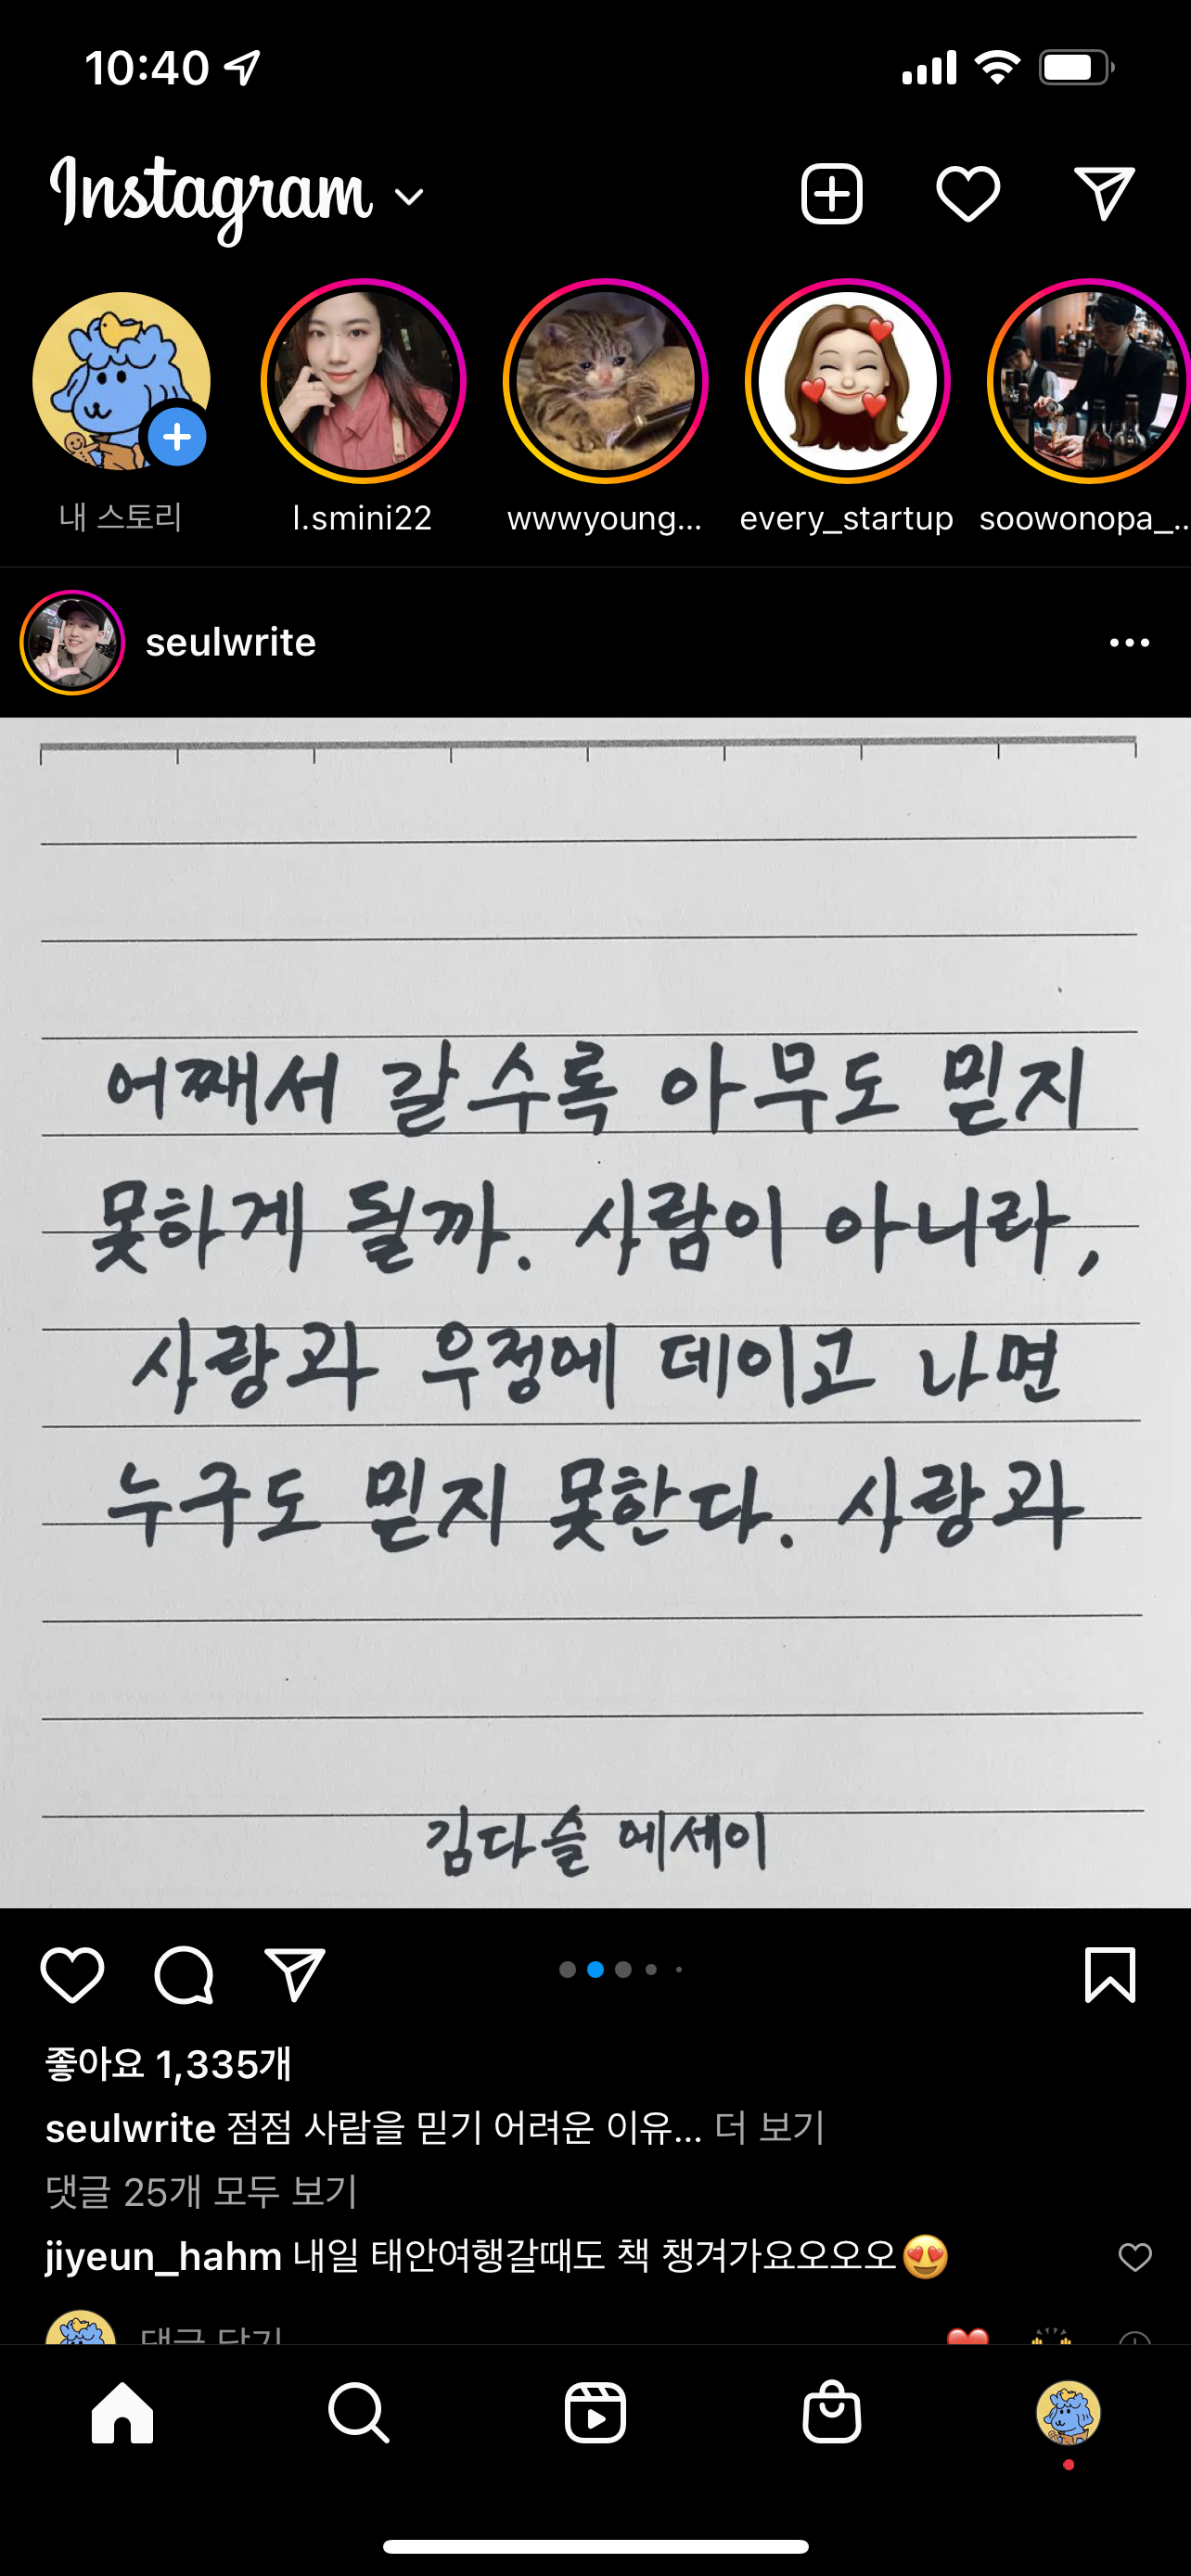 10:40
Instagram
내 스토리
l.smini22
wwwyoung...
every_startup
soowonopa_...
seulwrite
어째서 갈수록 아무도 믿지
못하게 될까. 사람이 아니라,
사랑과 우정에 데이고 나면
누구도 믿지 못한다. 사랑과
김다슬 에세이
좋아요 1,335개
seulwrite 점점 사람을 믿기 어려운 이유... 더 보기
댓글 25개 모두 보기
jiyeun_hahm 내일 태안여행갈때도 책 챙겨가요오오오😍
댓글 달기